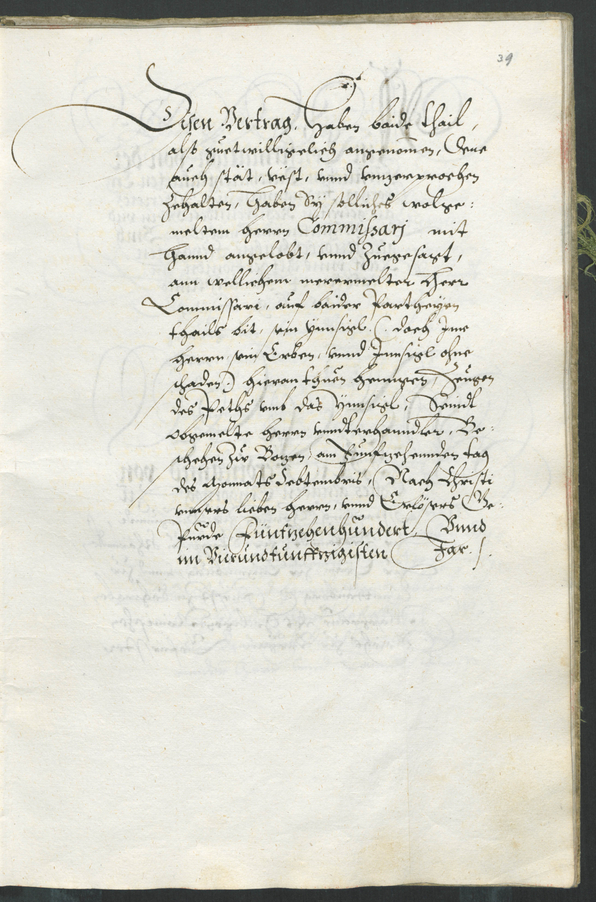 39
Disen Vertrag, haben baide thail,
alls guetwilligelich angenomen, Dene
auch stat, vest, vnnd vnzerprochen
zehalten, haben Sy solliches wolge:
meltem herrn Commissarj mit
hannd angelobt, vnnd Zuegesagt,
ann wellichem merermelter herr
Commissari, auf baider Partheyen
thails bit, sein Innsigl (: doch Ime
herrn, sein Erben, vnnd Innsigl ohne
schaden:) hieran thuen henngen, Zeugen
des Peths vmb das Innsigl, Seindt
obgemelte herrn vnndterhanndler, Be:
schehen Zu Bozen, am Funfzehennden tag
des Monnats Septembris, Nach Christi
vnnsers lieben herrn, vnnd Erlösers Ge:
purde Fünfzehenhundert, Vnnd
im Vierundfünffzigisten Jar /.